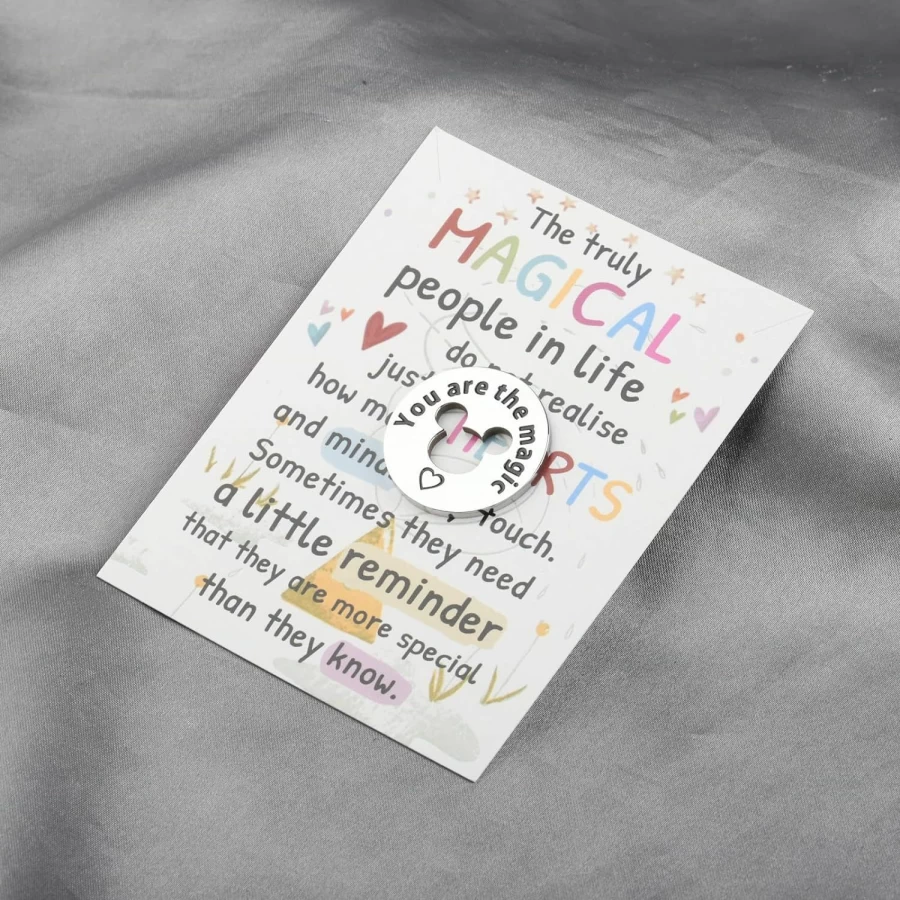 The truly
MAGICAL
people in life
do realise
just
how
HEARTS
and
touch.
Sometimes they need
a little reminder
that they are more special
than they know.
You are the magic